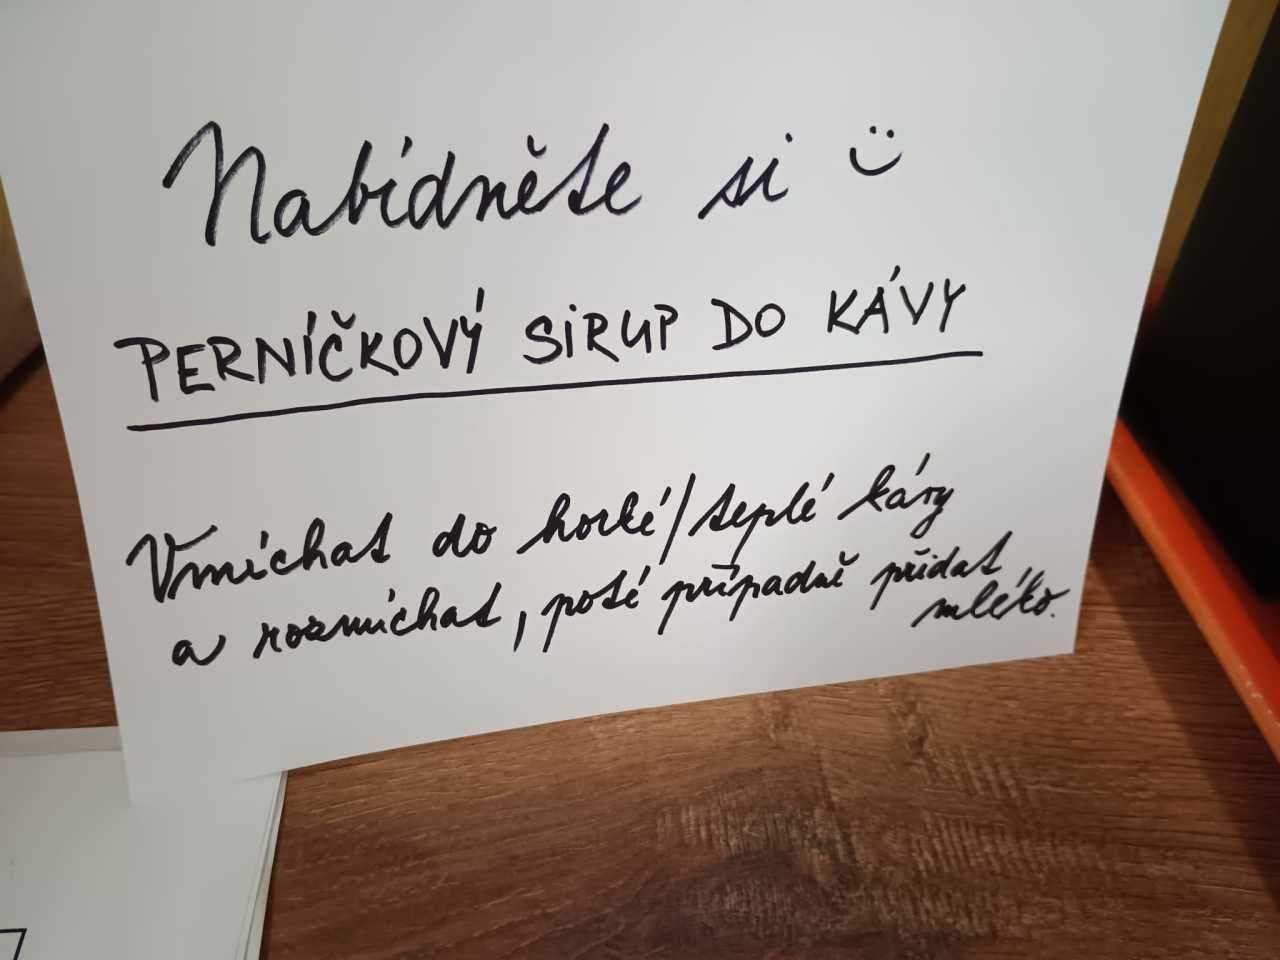 Nabídněte si :)
PERNÍČKOVÝ SIRUP DO KÁVY
Vmíchat do horké/teplé kávy
a rozmíchat, poté případně přidat
mléko.